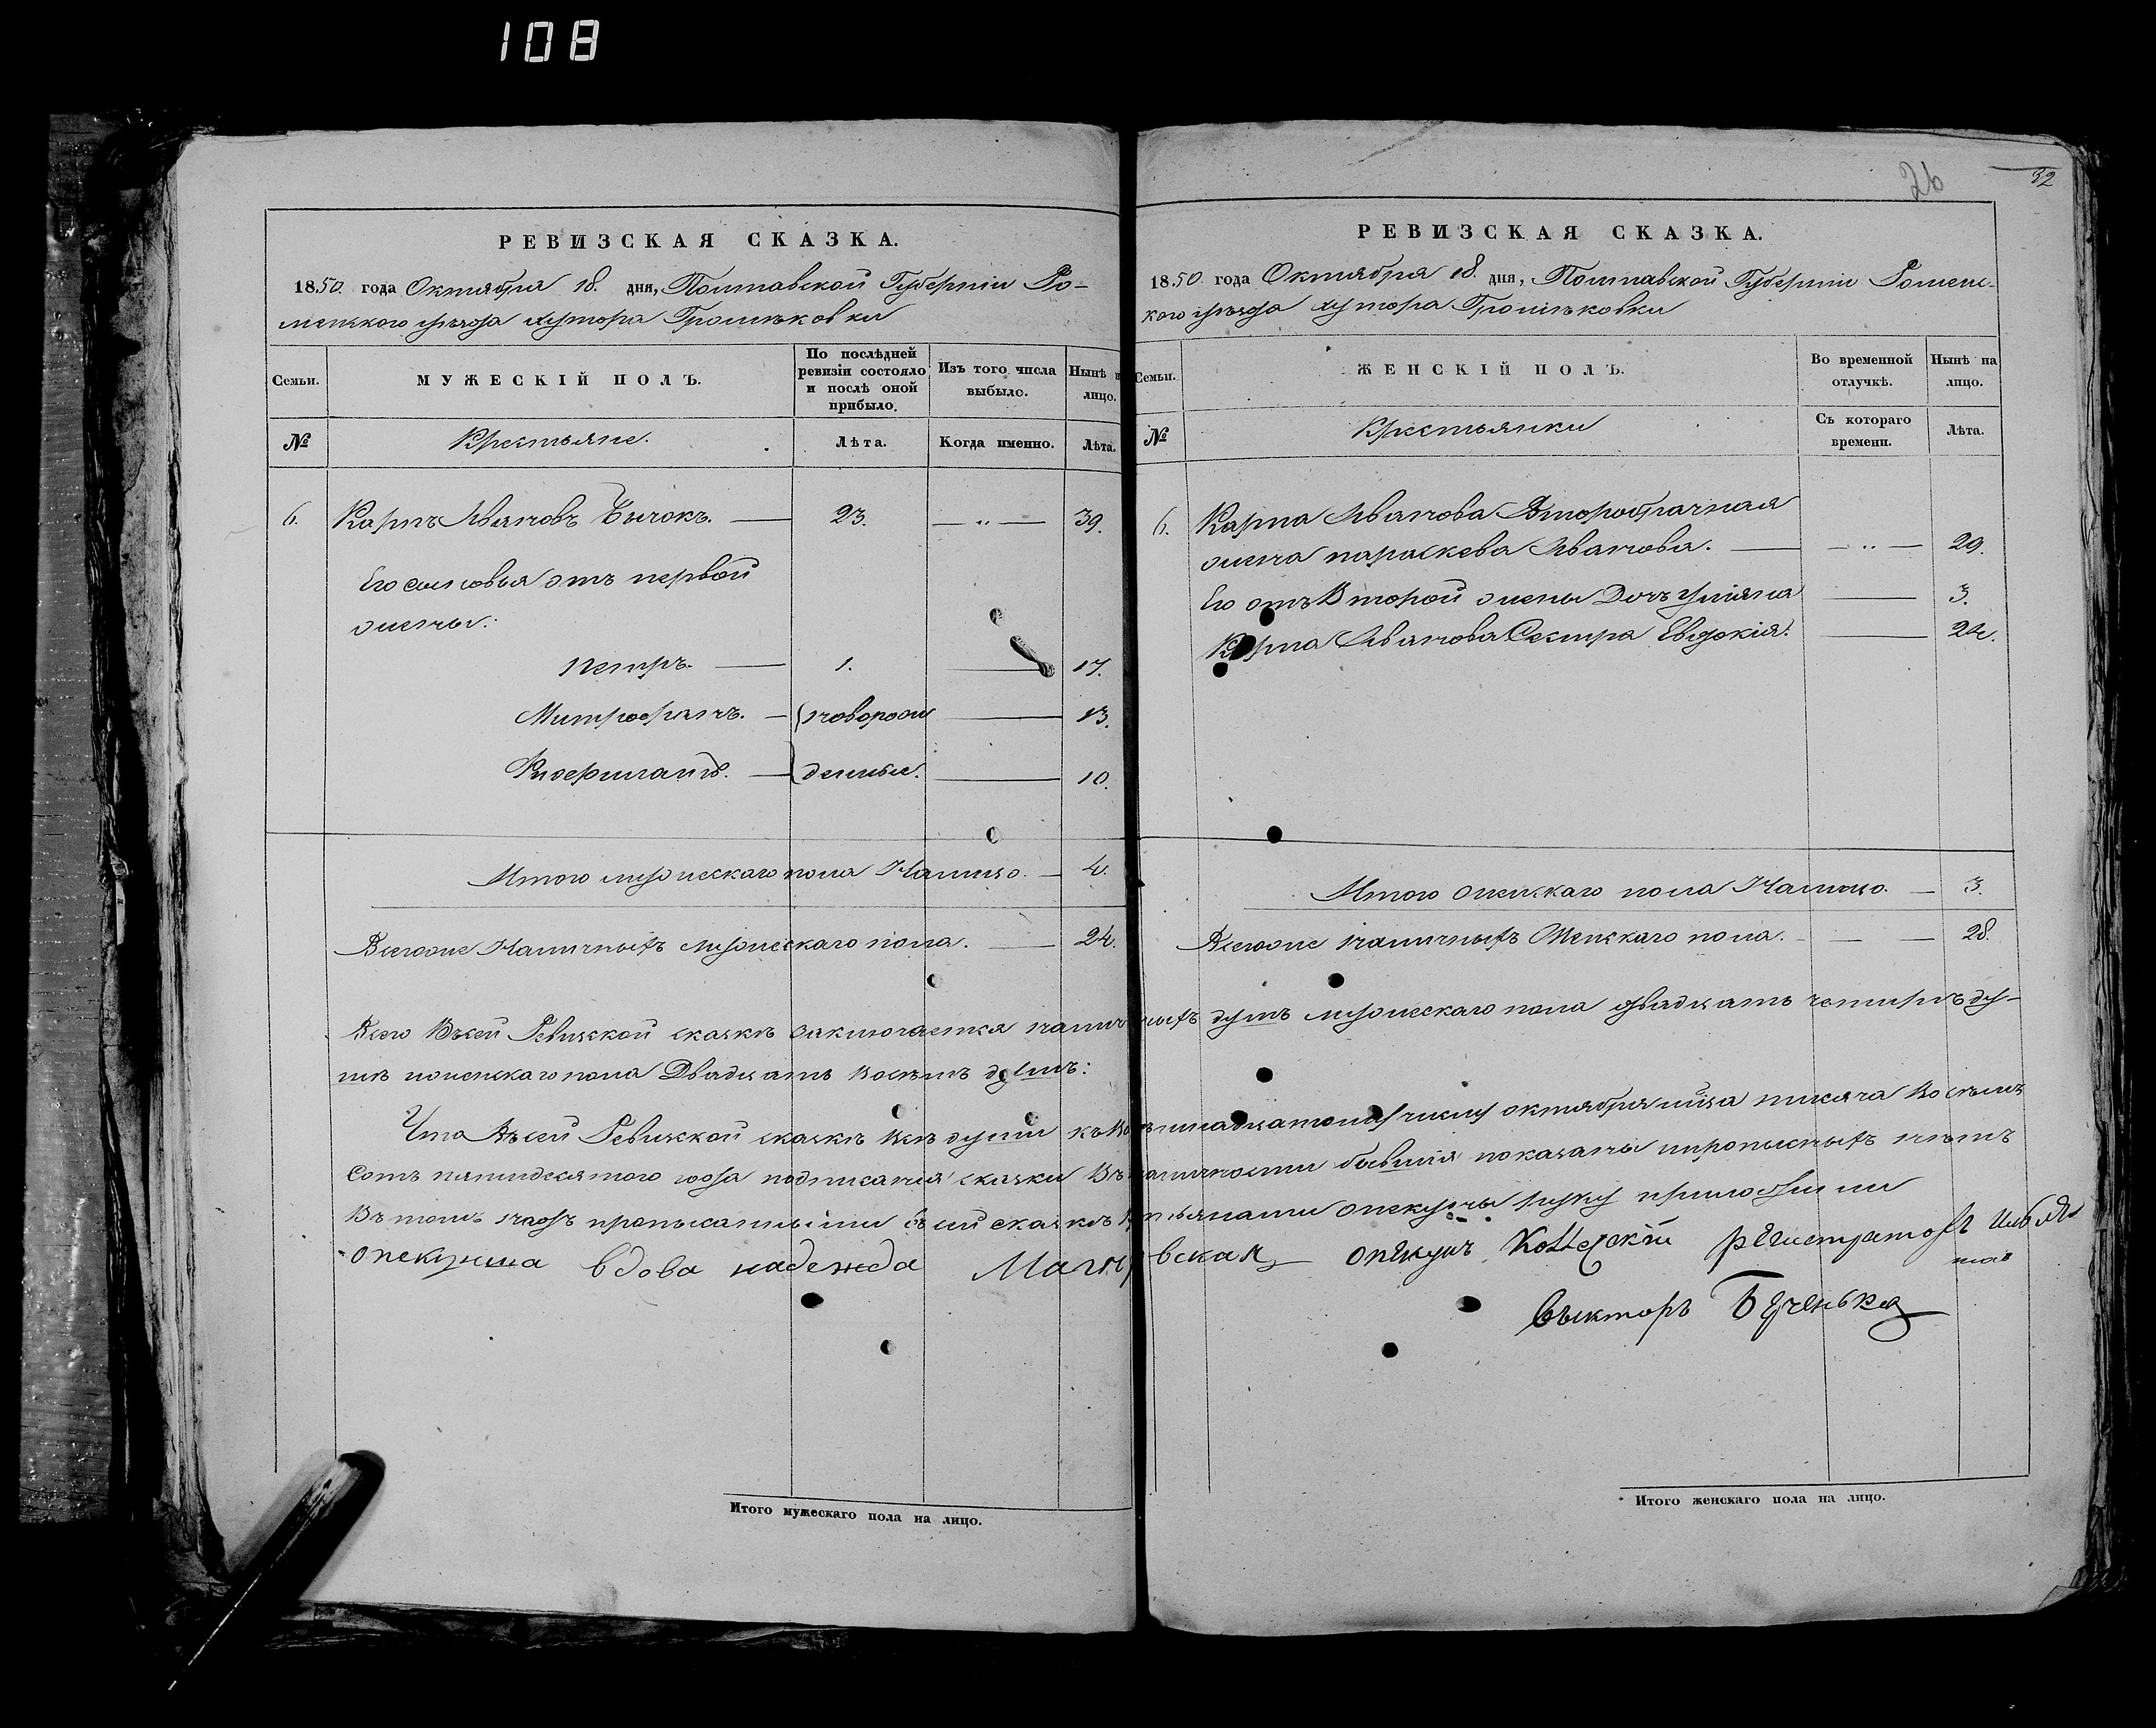 108
РЕВИЗСКАЯ СКАЗКА.
1850. года Октября 18. дня, Полтавской Губерніи Ро-
менского уѣзда хутора Громѣковки
Семьи.
МУЖЕСКІЙ ПОЛЪ.
По послѣдней ревизіи состояло и послѣ оной прибыло.
Изъ того числа выбыло.
Нынѣ н лицо.
№
Крестьяне.
Лѣта.
Когда именно.
Лѣта.
6. Карпъ Ивановъ Бычокъ. — 23. — „ — 39.
Его сыновья отъ первой
жены:
Петръ. — 1. — 17.
Митрофанъ. — новорож — 13.
— денные. — 10.
Итого мужескаго пола Налицо. — 4.
Всегоже Наличныхъ мужескаго пола. — 24.
26
32
РЕВИЗСКАЯ СКАЗКА.
1850. года Октября 18. дня, Полтавской Губерніи Ромен-
кого уѣзда хутора Громѣковки
Семьи.
ЖЕНСКІЙ ПОЛЪ.
Во временной отлучкѣ.
Нынѣ на лицо.
№
Крестьянки
Съ котораго времени.
Лѣта.
6. Карпа Иванова Второбрачная
жена параскева Иванова. — — „ — 29.
Его отъ Второй жены Дочь Уліяна — 3.
Карпа Иванова Сестра Евдокія. — 24.
Итого женскаго пола Налицо. — 3.
Всегоже наличныхъ Женскаго пола. — — 28.
Всего Въсей Ревизской сказкѣ заключается наличныхъ душъ мужескаго пола двадцать четыре ду-
шѣ иженскаго пола Двадцать восѣмъ душъ:
Что Въсей Ревизской сказкѣ всѣ души къ Восѣмнадцатому числу октября мца тисяча Восѣмъ
Сотъ пятидесятого года подписанія сказки Въ наличности бывшія показаны ипрописныхъ нѣтъ
Въ томъ надъ прописанными въ сей сказкѣ крестьянами опекуны руку приложили
опекунша вдова надежда опекунъ регистраторъ
Быкторъ
Итого мужескаго пола на лицо.
Итого женскаго пола на лицо.